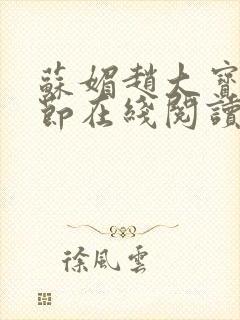 蘇媚趙大寶
節在綫閱讀
徐風雲